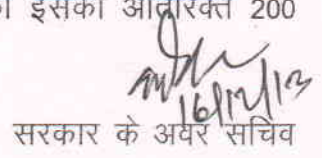 इसकी अतिरिक्त 200
16/12/13
सरकार के अवर सचिव